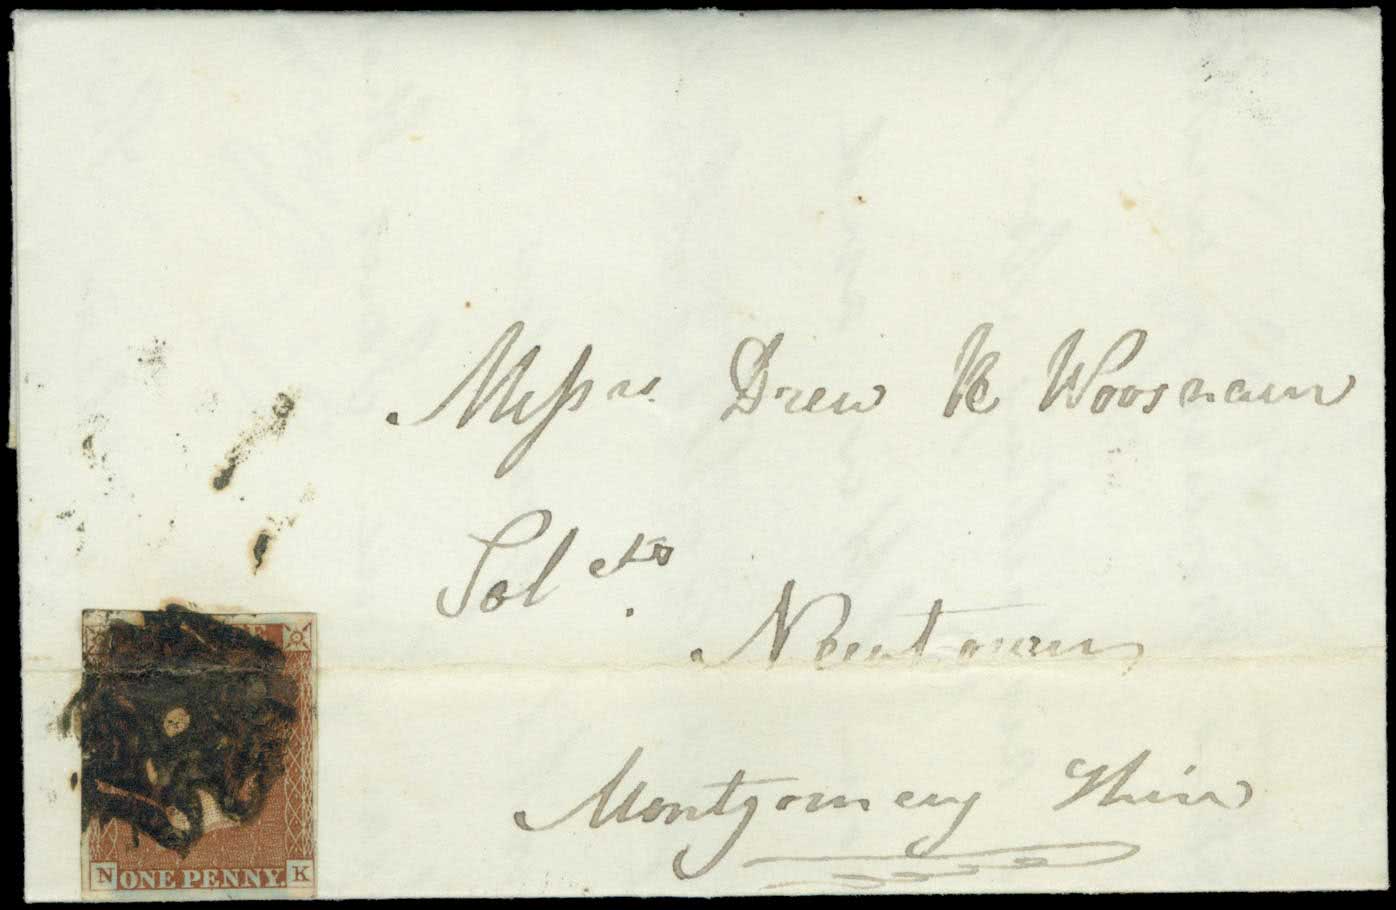 Messrs Drew & Woosnam
Solctrs
Newtown
Montgomery Shire
N ONE PENNY. K